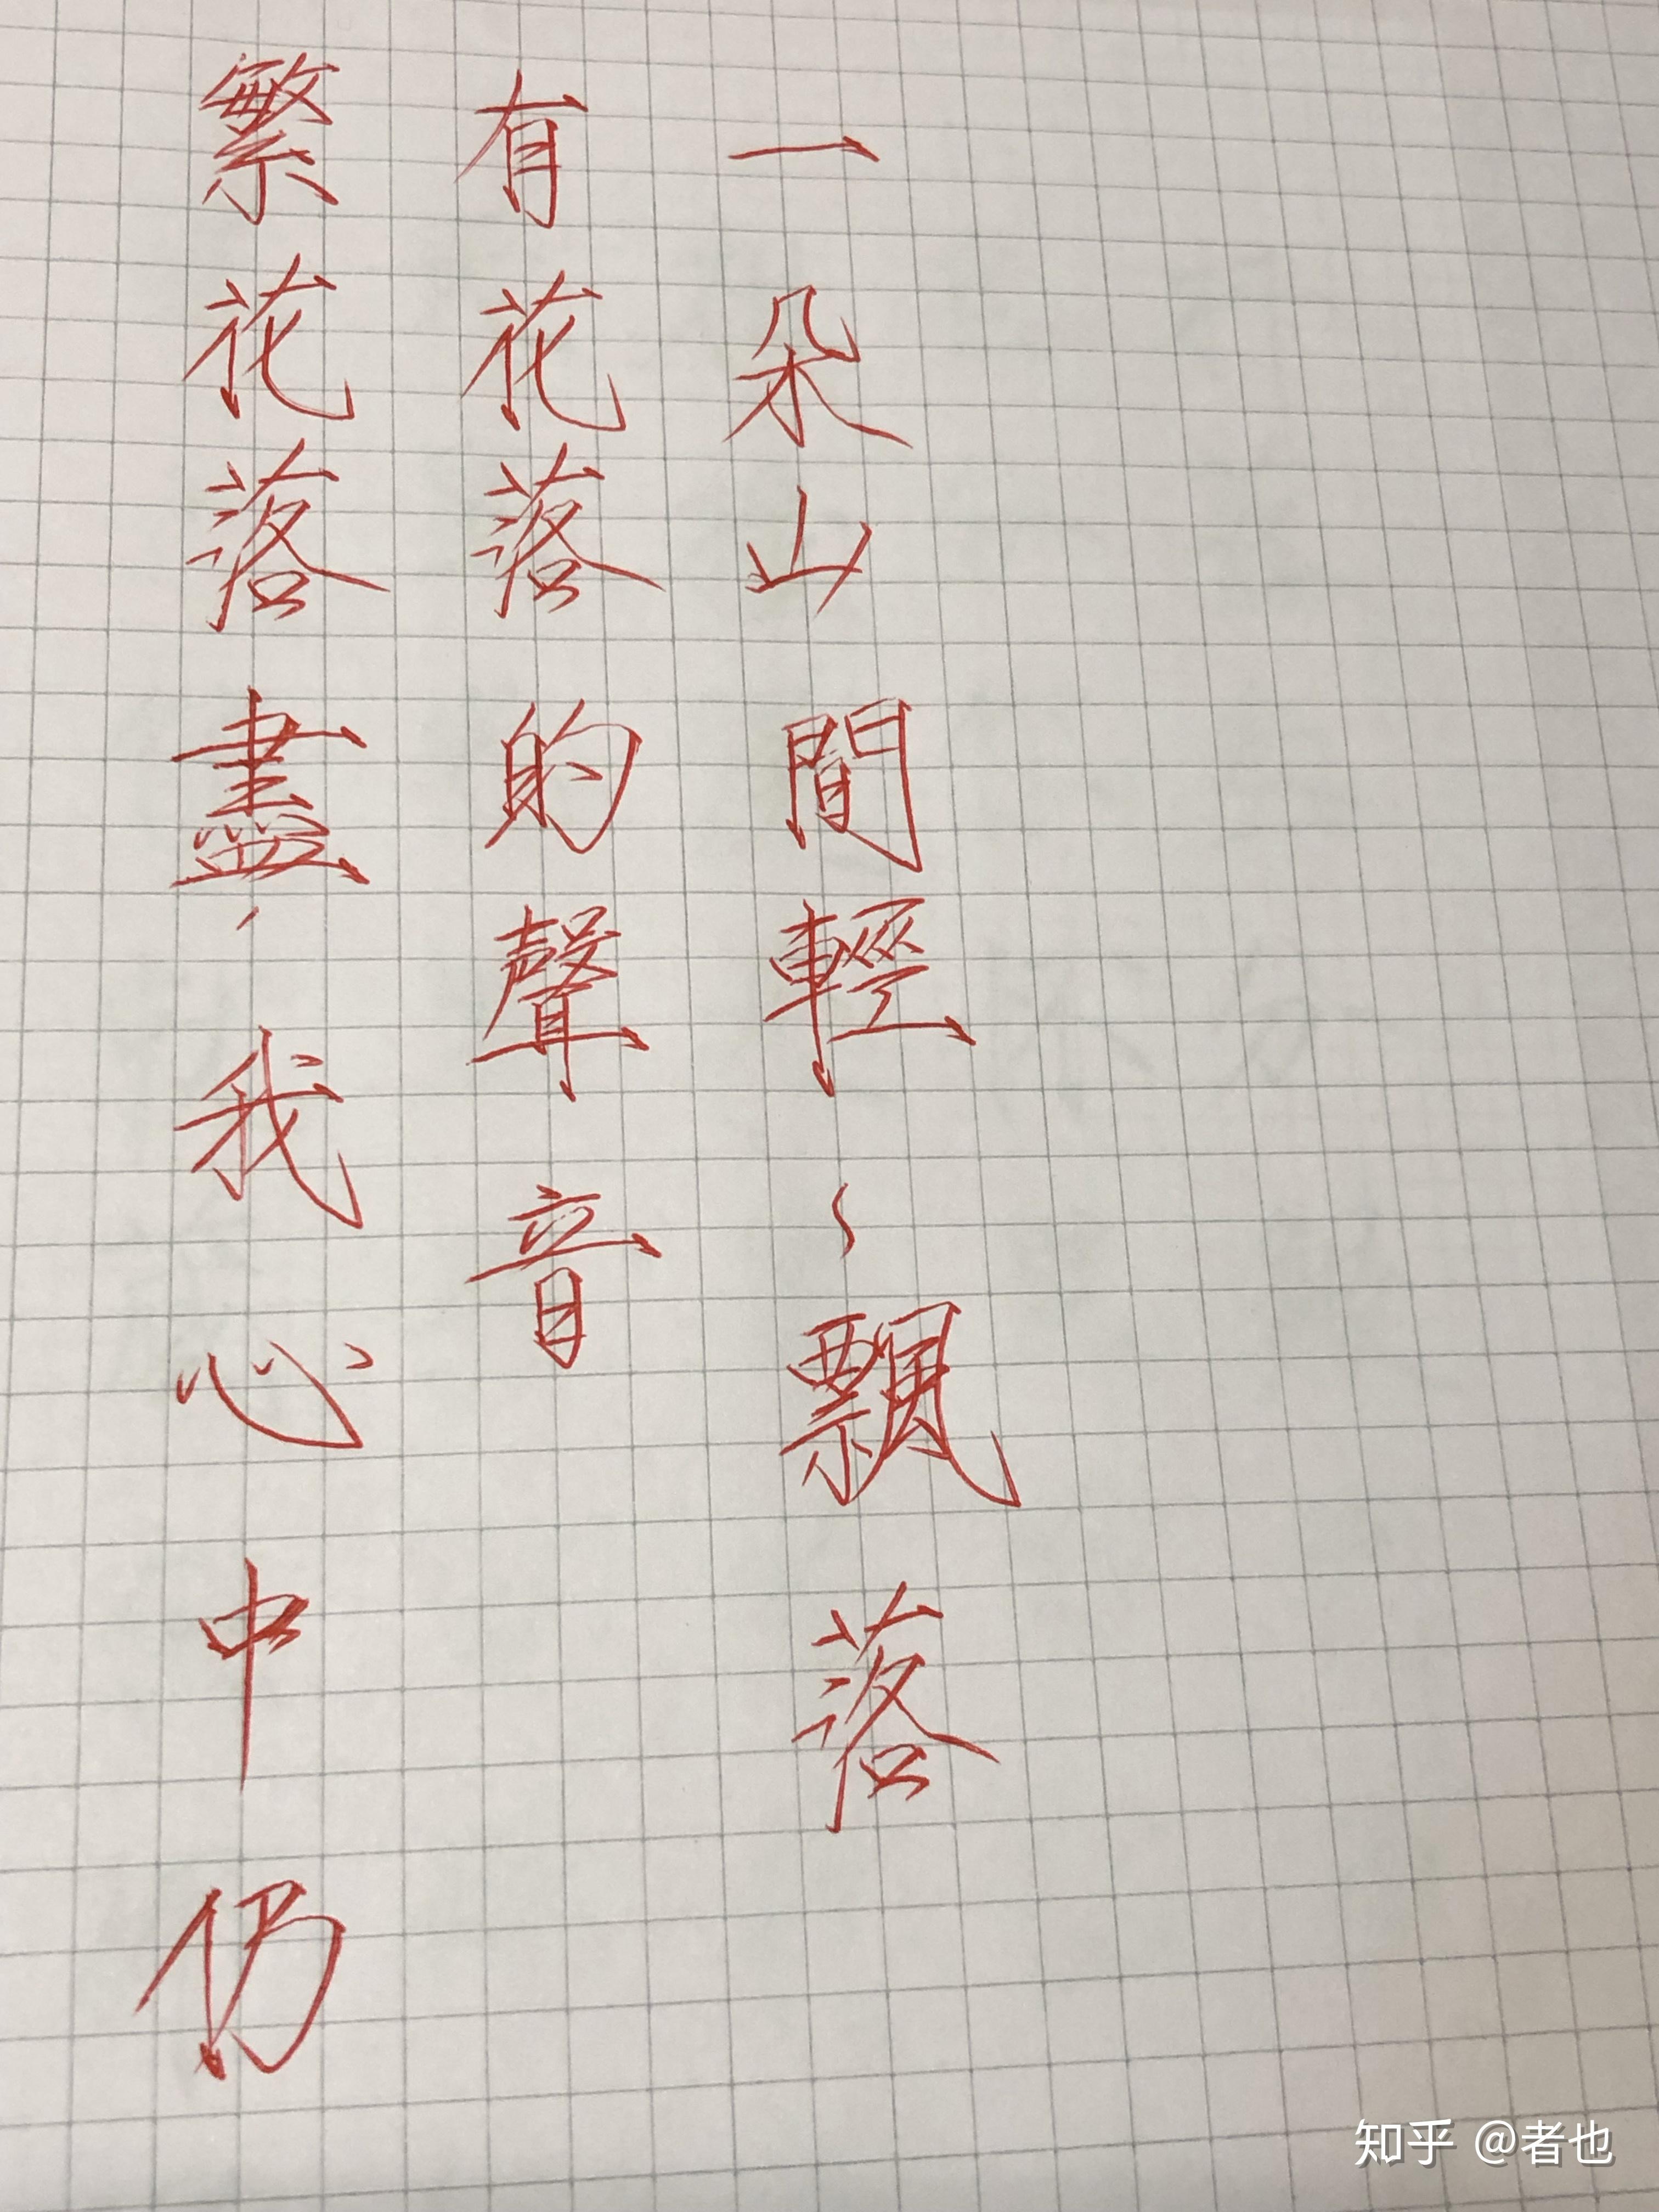 繁花落盡，我心中仍
有花落的聲音
一朵山間輕~飄落
知乎 @者也